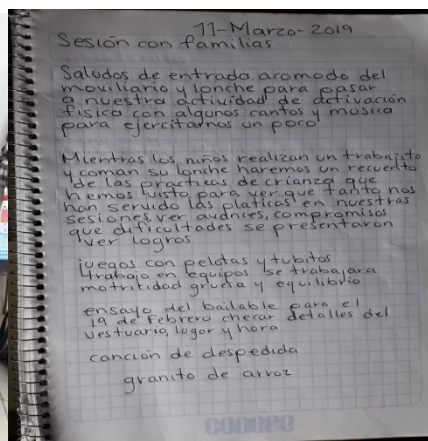 11-Marzo-2019
Sesión con familias
Saludos de entrada acomodo del
moviliario y lonche para pasar
a nuestra actividad de activación
física con algunos cantos y musica
para ejercitarnos un poco
Mientras los niños realizan un trabajito
y coman su lonche haremos un recuento
de las practicas de crianza que
hemos visto para ver que tanto nos
han servido las platicas en nuestras
sesiones ver avances, compromisos
que dificultades se presentaron
y ver logros
juegos con pelotas y tubitos
trabajo en equipos se trabajara
motricidad gruesa y equilibrio
ensayo del bailable para el
19 de Febrero checar detalles del
vestuario, lugar y hora
canción de despedida
granito de arroz